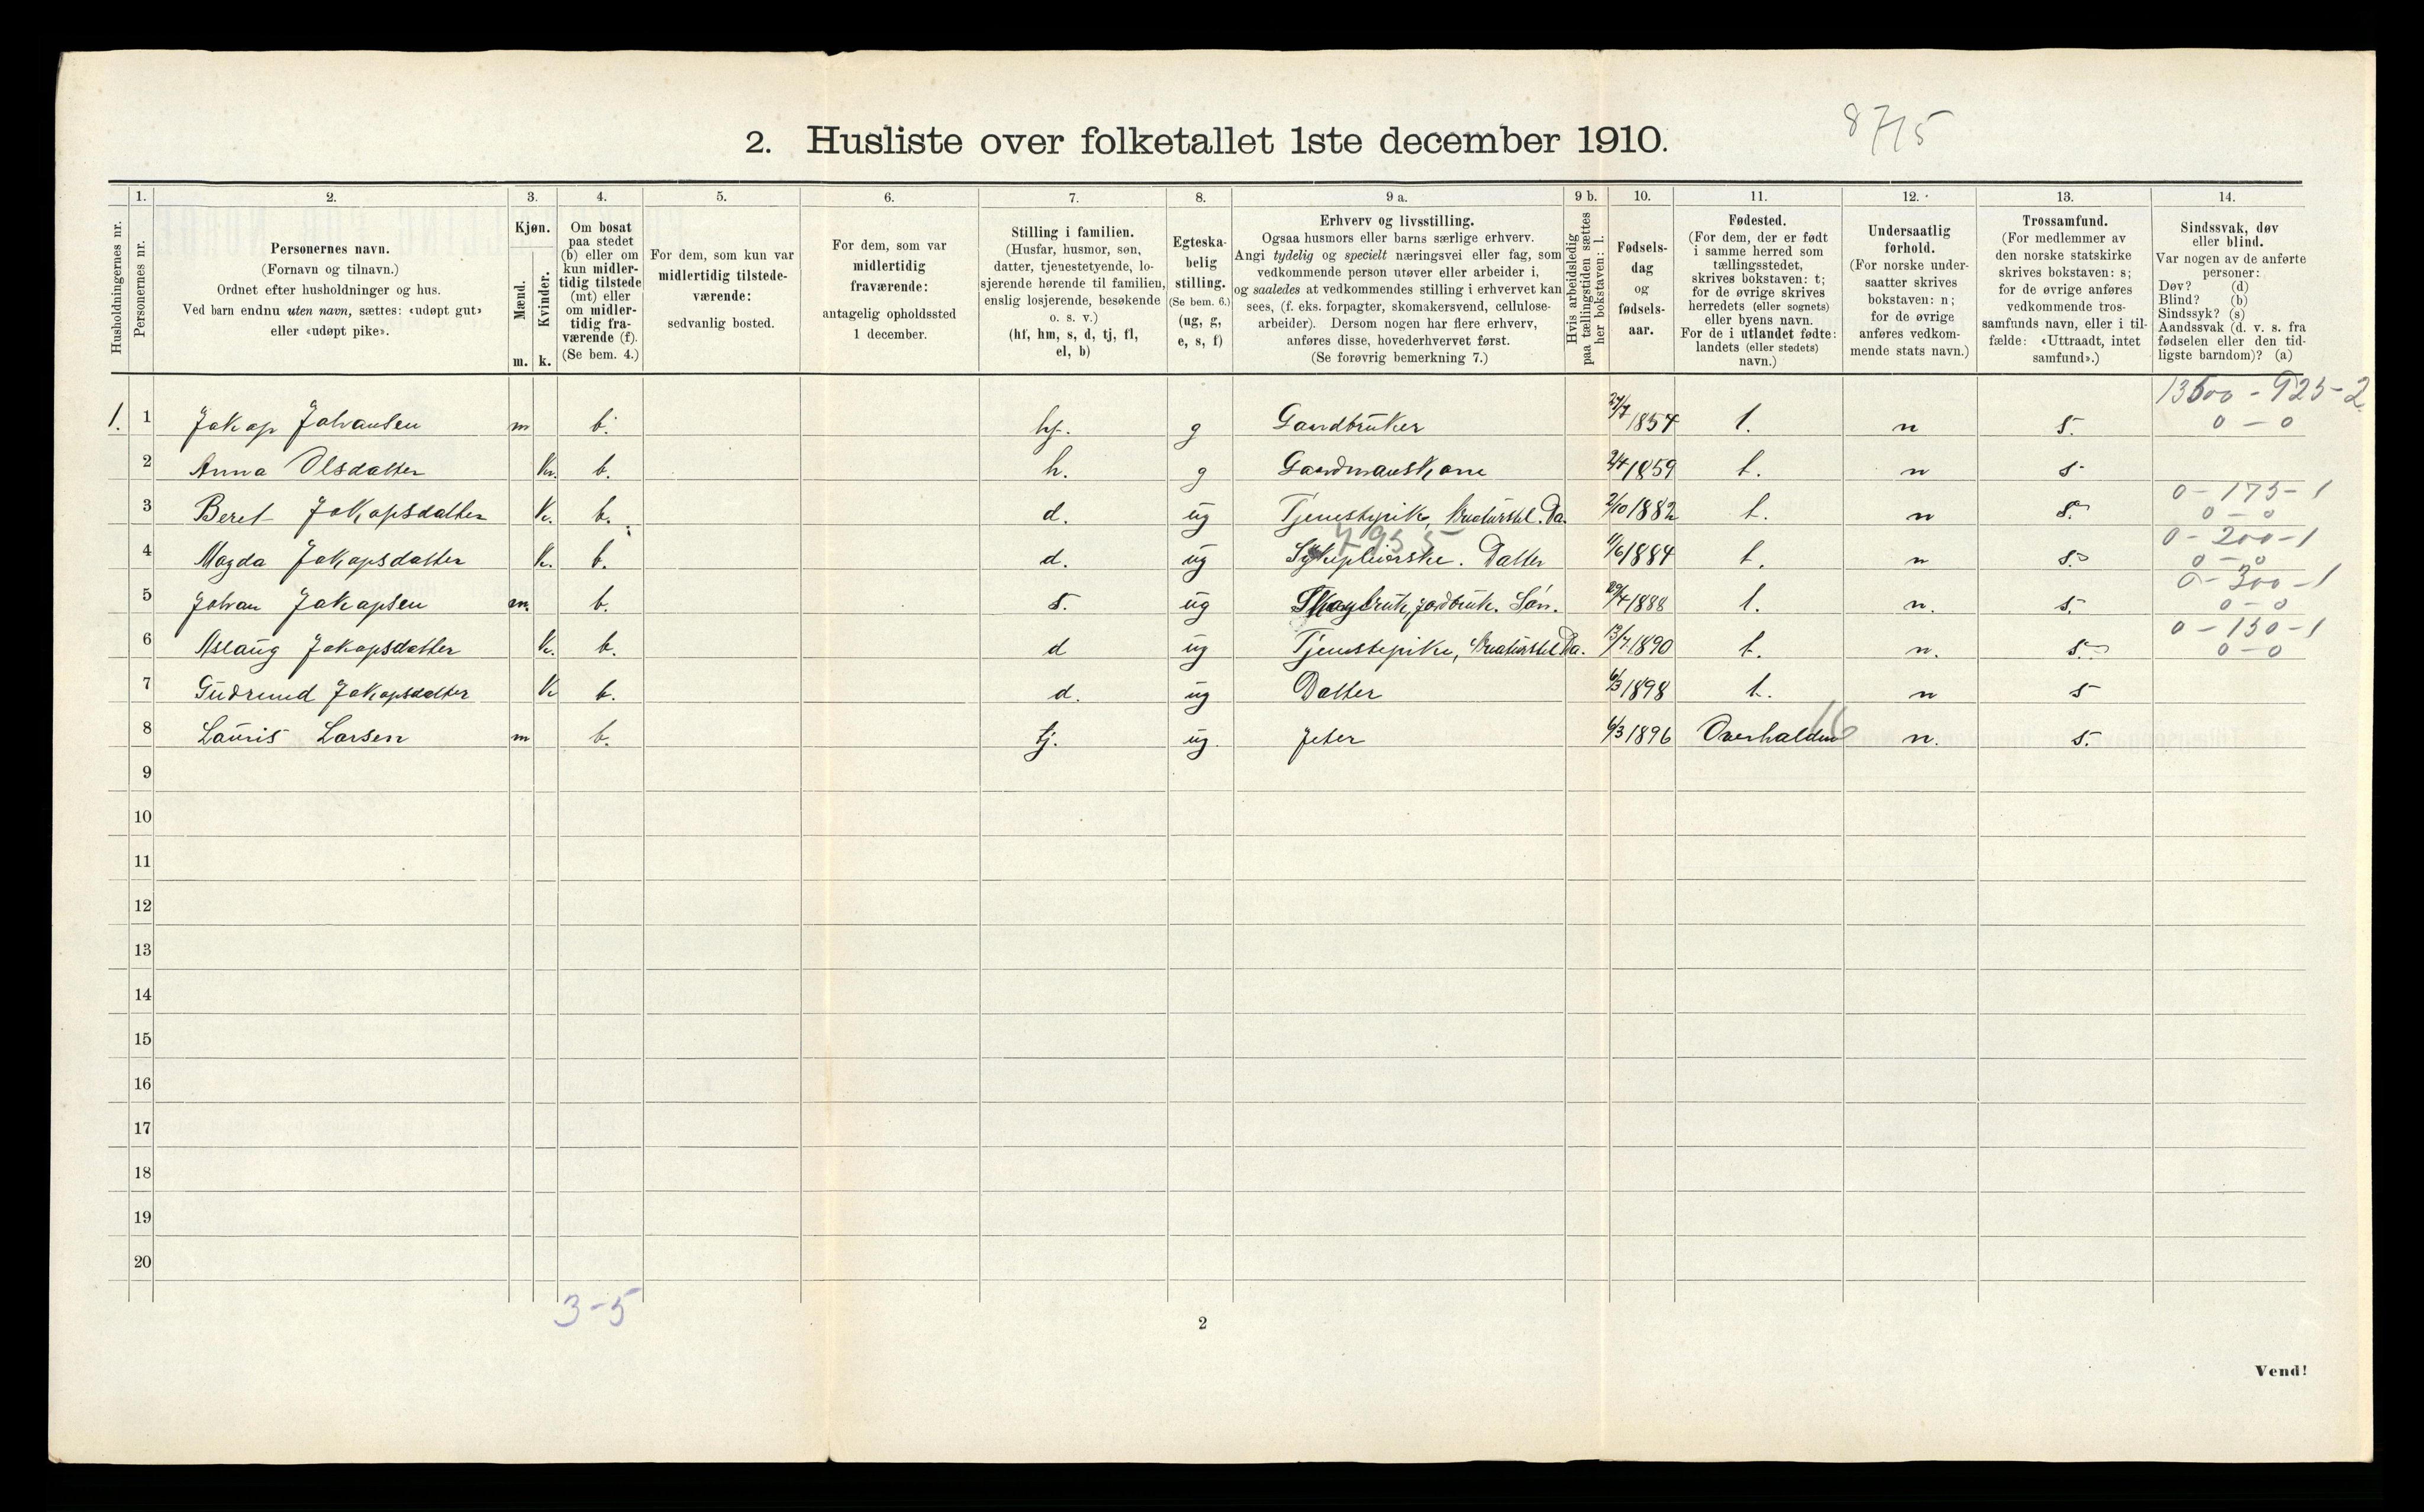 8775
2. Husliste over folketallet 1ste december 1910.
Husholdningernes nr.
1. Personernes nr.
2. Personernes navn. (Fornavn og tilnavn.) Ordnet efter husholdninger og hus. Ved barn endnu uten navn, sættes: «udøpt gut» eller «udøpt pike».
3. Kjøn. Mænd. m. Kvinder. k.
4. Om bosat paa stedet (b) eller om kun midlertidig tilstede (mt) eller om midlertidig fraværende (f). (Se bem. 4.)
5. For dem, som kun var midlertidig tilstedeværende: sedvanlig bosted.
6. For dem, som var midlertidig fraværende: antagelig opholdssted 1 december.
7. Stilling i familien. (Husfar, husmor, søn, datter, tjenestetyende, losjerende hørende til familien, enslig losjerende, besøkende o. s. v.) (hf, hm, s, d, tj, fl, el, b)
8. Egteskabelig stilling. (Se bem. 6.) (ug, g, e, s, f)
9 a. Erhverv og livsstilling. Ogsaa husmors eller barns særlige erhverv. Angi tydelig og specielt næringsvei eller fag, som vedkommende person utøver eller arbeider i, og saaledes at vedkommendes stilling i erhvervet kan sees, (f. eks. forpagter, skomakersvend, cellulosearbeider). Dersom nogen har flere erhverv, anføres disse, hovederhvervet først. (Se forøvrig bemerkning 7.)
9 b. Hvis arbeidsledig paa tællingstiden sættes her bokstaven: l.
10. Fødselsdag og fødselsaar.
11. Fødested. (For dem, der er født i samme herred som tællingsstedet, skrives bokstaven: t; for de øvrige skrives herredets (eller sognets) eller byens navn. For de i utlandet fødte: landets (eller stedets) navn.)
12. Undersaatlig forhold. (For norske undersaatter skrives bokstaven: n; for de øvrige anføres vedkommende stats navn.)
13. Trossamfund. (For medlemmer av den norske statskirke skrives bokstaven: s; for de øvrige anføres vedkommende trossamfunds navn, eller i tilfælde: «Uttraadt, intet samfund».)
14. Sindssvak, døv eller blind. Var nogen av de anførte personer: Døv? (d) Blind? (b) Sindssyk? (s) Aandssvak (d. v. s. fra fødselen eller den tidligste barndom)? (a)
13500 - 925 - 2
1. 1 Jakop Johansen m b. hf. g Gaardbruker 27/7 1857 t. n s. 0 - 0
2 Anna Olsdatter k. b. h. g Gaardmanskone 2/4 1859 t. n s
0 - 175 - 1
3 Beret Jakopsdatter k. b. d. ug Tjenestepike, Kreaturstel. Da. 2/10 1882 t. n s. 0 - 0
7955 0 - 200 - 1
4 Magda Jakopsdatter k. b. d. ug Sykepleierske. Datter 1/6 1884 t. n s. 0 - 0
0 - 300 - 1
5 Johan Jakopsen m. b. s. ug Skogbruk, jordbruk. Søn. 29/4 1888 t. n. s. 0 - 0
0 - 150 - 1
6 Aslaug Jakopsdatter k. b. d ug Tjenestepike, Kreaturstel Da. 13/7 1890 t. n. s. 0 - 0
7 Gudrund Jakopsdatter k b. d. ug Datter 6/3 1898 t. n s
16
8 Lauris Larsen m b. tj. ug. Jeter 6/3 1896 Overhalden n. s.
9
10
11
12
13
14
15
16
17
18
19
20
3-5
2
Vend!